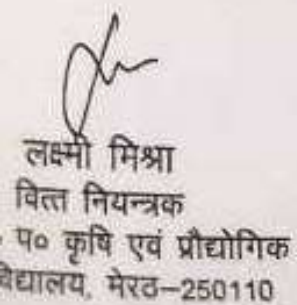 लक्ष्मी मिश्रा
वित्त नियन्त्रक
प० कृषि एवं प्रौद्योगिक
विद्यालय, मेरठ-250110